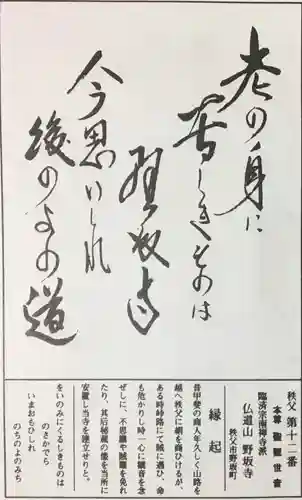 老の身に
苦しきものは
野坂寺
今思いしれ
後のよの道
秩父 第十二番
本尊 聖観世音
臨済宗南禅寺派
仏道山 野坂寺
秩父市野坂町
縁起
昔甲斐の商人年久しく山路を
越へ秩父に絹を商ひけるが、
ある時峠路にて賊に遇ひ、命
も危かりし時一心に観音を念
ぜしに、不思議や賊難を免れ
たり、其后秘蔵の像を当所に
安置し当寺を建立せりと。
をいのみにくるしきものは
のさかでら
いまおもひしれ
のちのよのみち